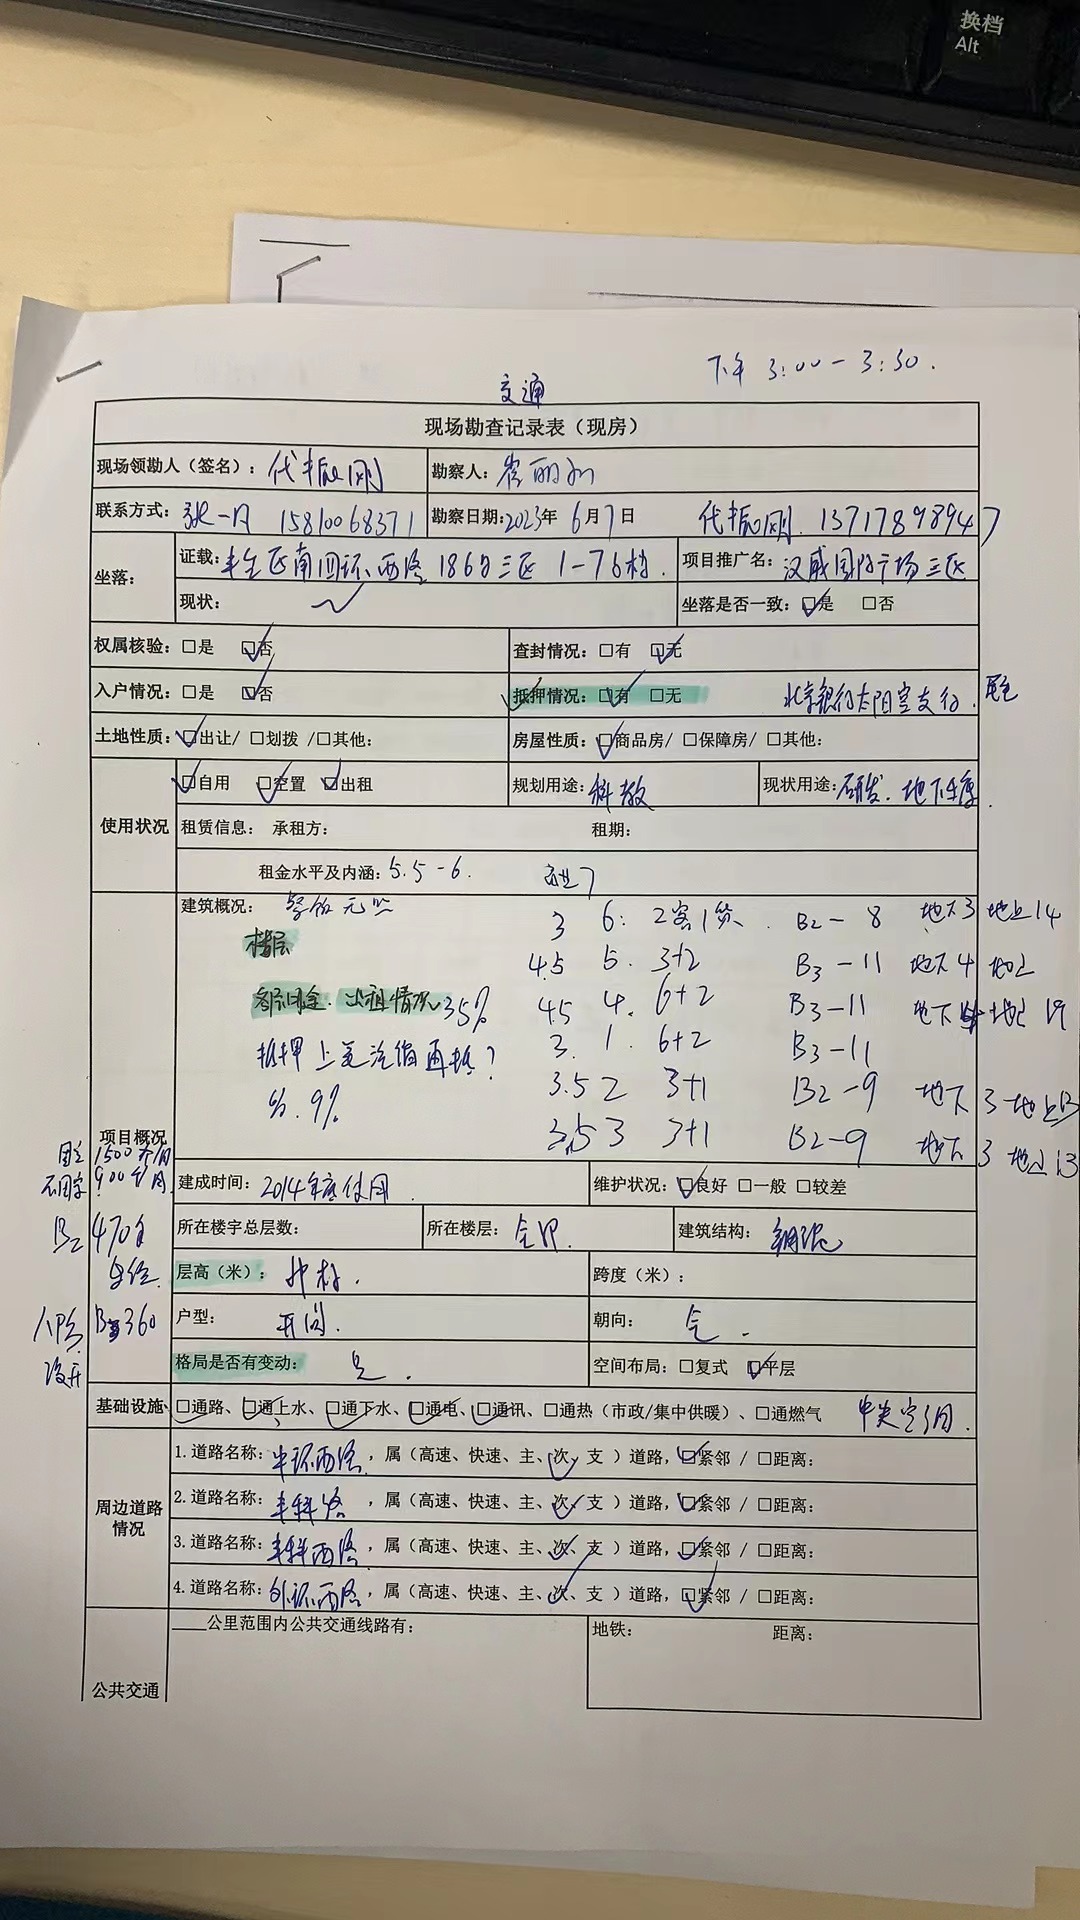 换档
Alt
下午 3:00-3:30.
交通
现场勘查记录表（现房）
现场领勘人（签名）：代振刚 勘察人：崔丽
联系方式：张一凡 15810068371 勘察日期：2023年 6月7日 代振刚. 13717898947
坐落： 证载：丰台区南四环西路 186号三区 1-7号楼. 项目推广名：汉威国际广场三区
现状： 坐落是否一致：☑是 □否
权属核验：□是 ☑否 查封情况：□有 ☑无
入户情况：□是 ☑否 抵押情况：☑有 □无 北京银行太阳宫支行.
土地性质：☑出让/ □划拨 /□其他： 房屋性质：☑商品房/ □保障房/ □其他：
使用状况 ☑自用 ☑空置 ☑出租 规划用途：科教 现状用途：研发. 地下车库.
租赁信息： 承租方： 租期：
租金水平及内涵：5.5-6.
项目概况
建筑概况： 3 6: 2客1货. B2-8 地下3 地上14
楼层 4.5 5. 3+2 B3-11 地下4 地上
出租情况 35% 4.5 4. 6+2 B3-11 地下 地上19
抵押 3. 1. 6+2 B3-11
9% 3.5 2 3+1 B2-9 地下 3 地上13
3.5 3 3+1 B2-9 地下 3 地上13
固定 1500/个/月
不固定 900/个/月
B2 470个
车位
B3 360
人防
没开
建成时间：2014年底使用. 维护状况：☑良好 □一般 □较差
所在楼宇总层数： 所在楼层：全部. 建筑结构：钢混
层高（米）： 跨度（米）：
户型：开间. 朝向：全.
格局是否有变动：是. 空间布局：□复式 ☑平层
基础设施 ☑通路、☑通上水、☑通下水、☑通电、☑通讯、□通热（市政/集中供暖）、□通燃气 中央空调.
周边道路情况
1.道路名称：中环西路，属（高速、快速、主、次、支）道路，☑紧邻 / □距离：
2.道路名称：丰科路，属（高速、快速、主、次、支）道路，☑紧邻 / □距离：
3.道路名称：丰科西路，属（高速、快速、主、次、支）道路，☑紧邻 / □距离：
4.道路名称：外环西路，属（高速、快速、主、次、支）道路，☑紧邻 / □距离：
公共交通 ___公里范围内公共交通线路有： 地铁： 距离：